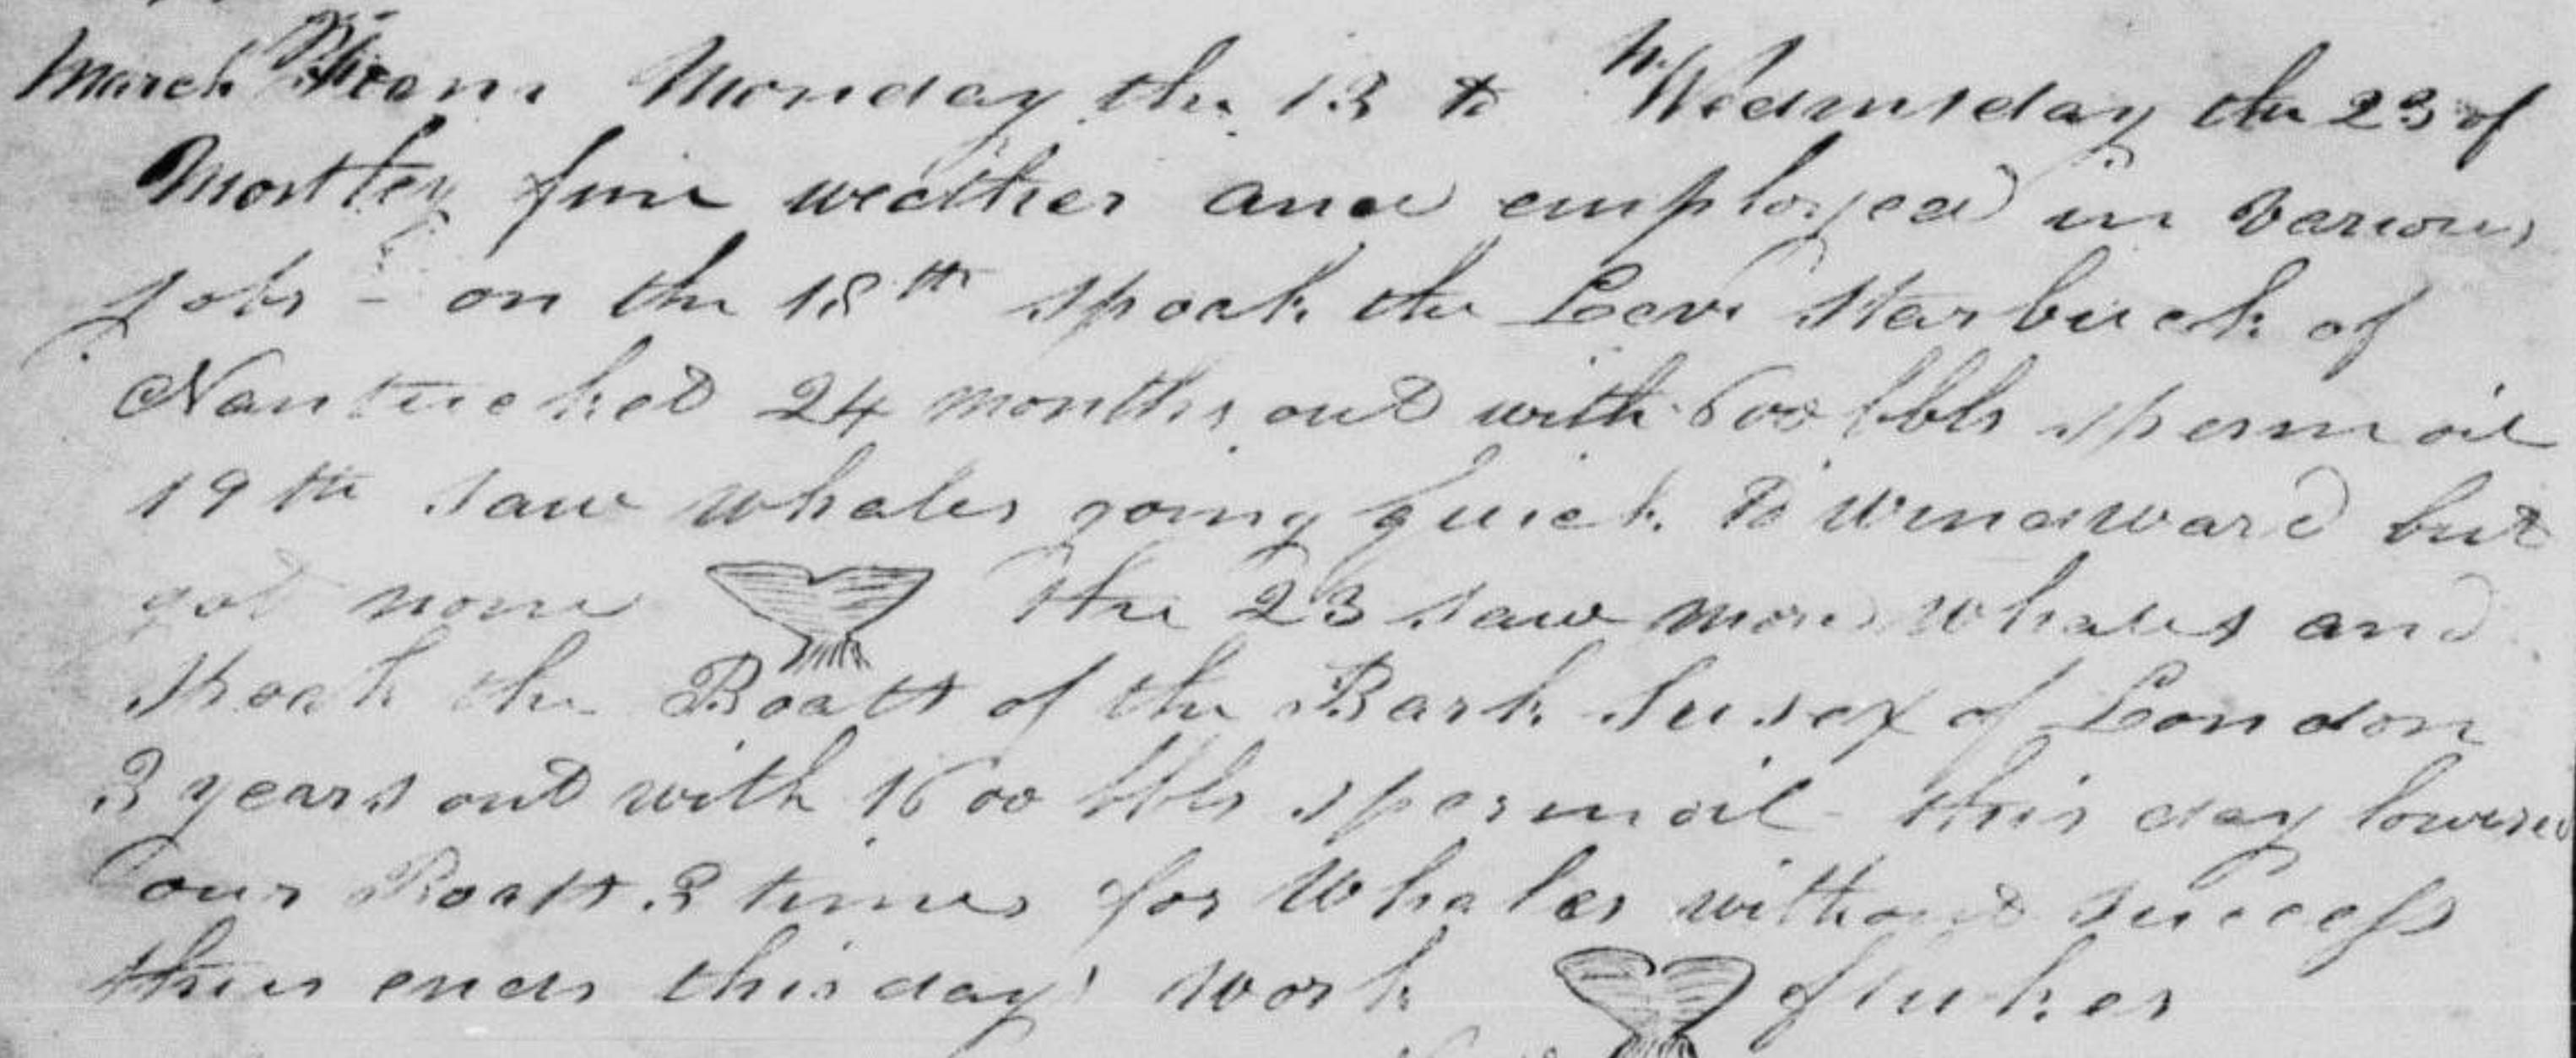 March From Monday the 13 to Wednesday the 23 of
Mostley fine weather and employed in various
jobs - on the 18th spoak the Levi Starbuck of
Nantucket 24 months out with 600 bbls sperm oil
19th saw whales going quick to windward but
got none the 23 saw more whales and
spoak the Boats of the Bark Susex of London
3 years out with 1600 bbls sperm oil - this day lowered
our Boats 3 times for Whales without success
thus ends this days work flukes